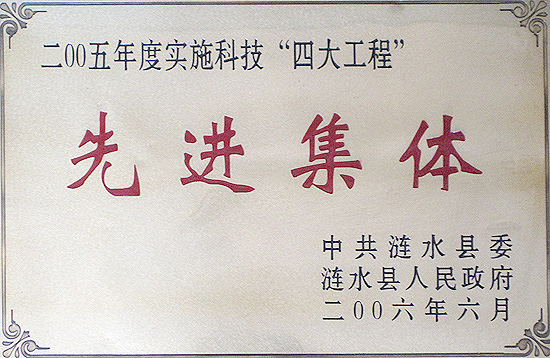 二00五年度实施科技“四大工程”
先进集体
中共涟水县委
涟水县人民政府
二00六年六月